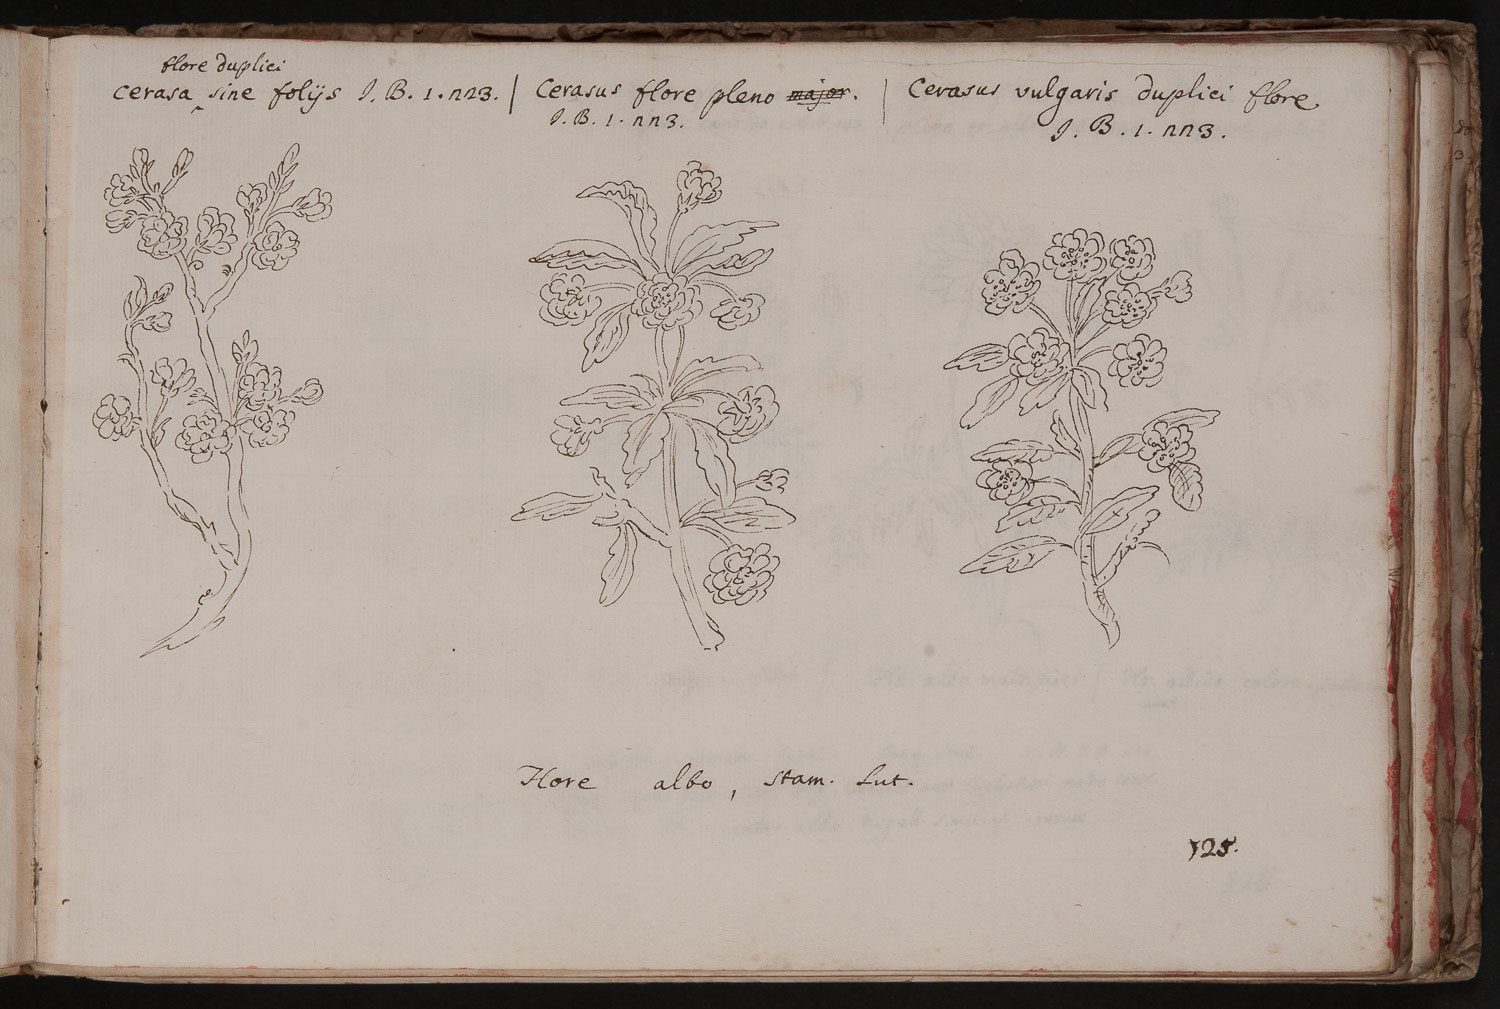 flore duplici
Cerasa ‸ sine folijs J. B. 1. 223. |
Cerasus flore pleno major. |
J. B. 1. 223.
Cerasus vulgaris duplici flore
J. B. 1. 223.
Flore albo, stam. Lut.
125.